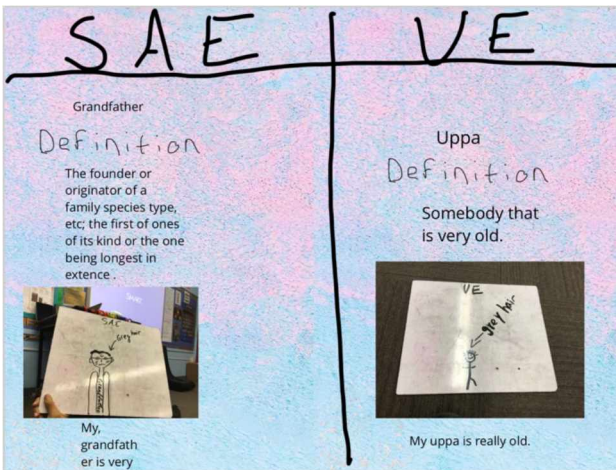 SAE
VE
Grandfather
Definition
The founder or
originator of a
family species type,
etc; the first of ones
of its kind or the one
being longest in
extence .
SAE
Grey hair
My,
grandfath
er is very
Uppa
Definition
Somebody that
is very old.
VE
grey hair
My uppa is really old.